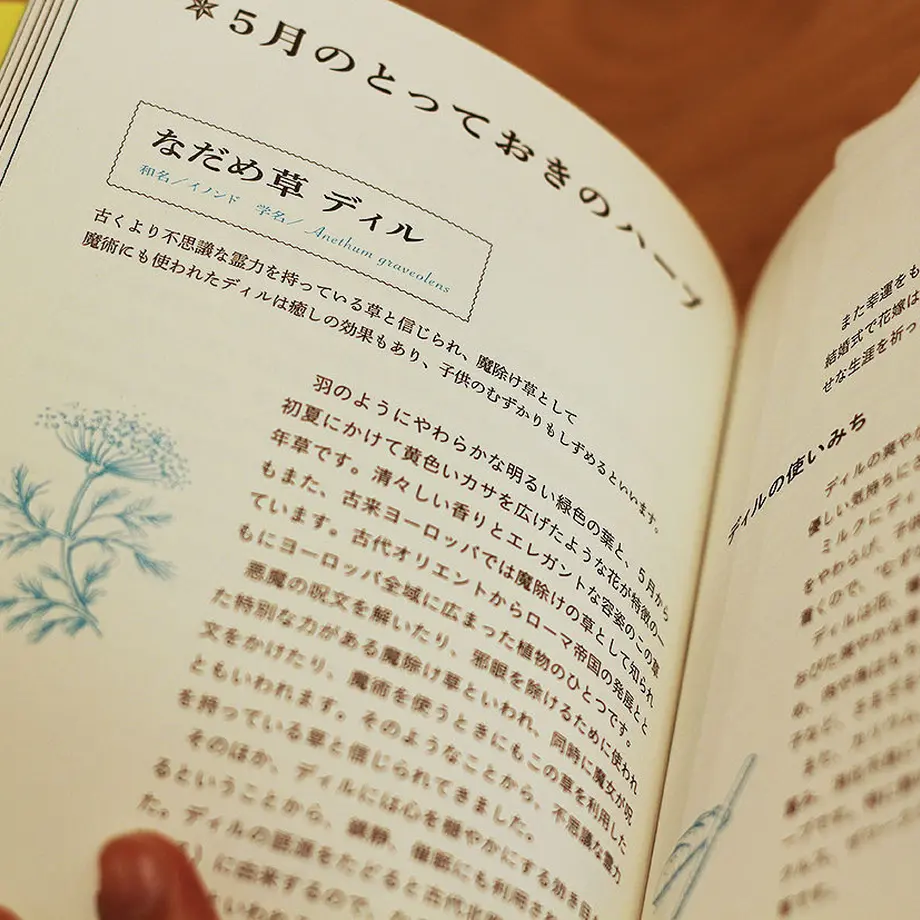 5月のとっておきのハーブ
なだめ草 ディル
和名／イノンド 学名／Anethum graveolens
古くより不思議な霊力を持っている草と信じられ、魔除け草として
魔術にも使われたディルは癒しの効果もあり、子供のむずかりもしずめるといいます。
羽のようにやわらかな明るい緑色の葉と、5月から
初夏にかけて黄色いカサを広げたような花が特徴の一
年草です。清々しい香りとエレガントな容姿のこの草
もまた、古来ヨーロッパでは魔除けの草として知られ
ています。古代オリエントからローマ帝国の発展とと
もにヨーロッパ全域に広まった植物のひとつです。
悪魔の呪文を解いたり、邪眼を除けるために使われ
た特別な力がある魔除け草といわれ、同時に魔女が呪
文をかけたり、魔術を使うときにもこの草を利用した
ともいわれます。そのようなことから、不思議な霊力
を持っている草と信じられてきました。
そのほか、ディルには心を穏やかにする効き目
るということから、鎮静、催眠にも利用され
た。ディルの語源をたどると古代北
に由来するので、
また幸運をも
結婚式で花嫁は
せな生涯を祈っ
ディルの使いみち
ディルの爽や
優しい気持ちに
ミルクにディ
をやわらげ、子供
置くので、
ディルは花、
おびた爽やかな